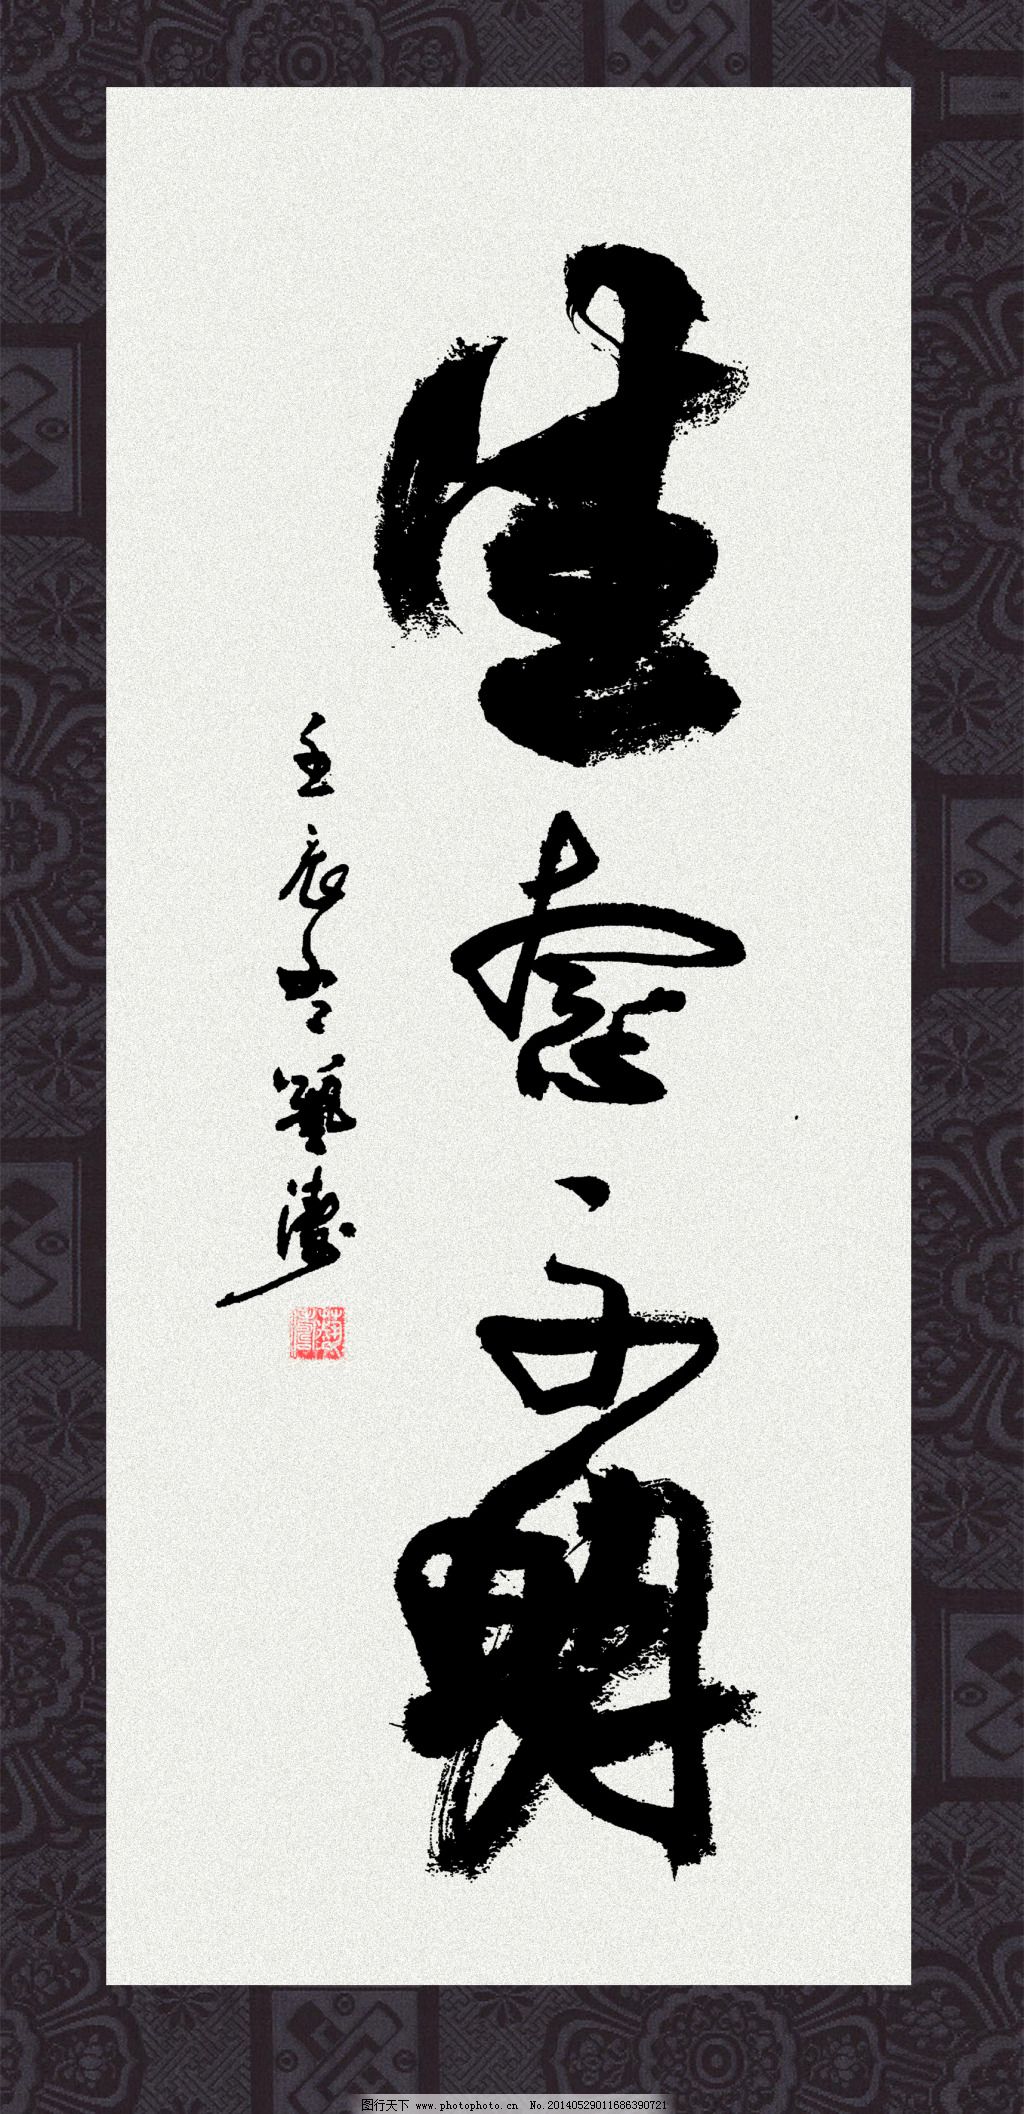 生态文明
壬辰冬藝濤
图行天下 www.photophoto.cn No.20140529011686390721